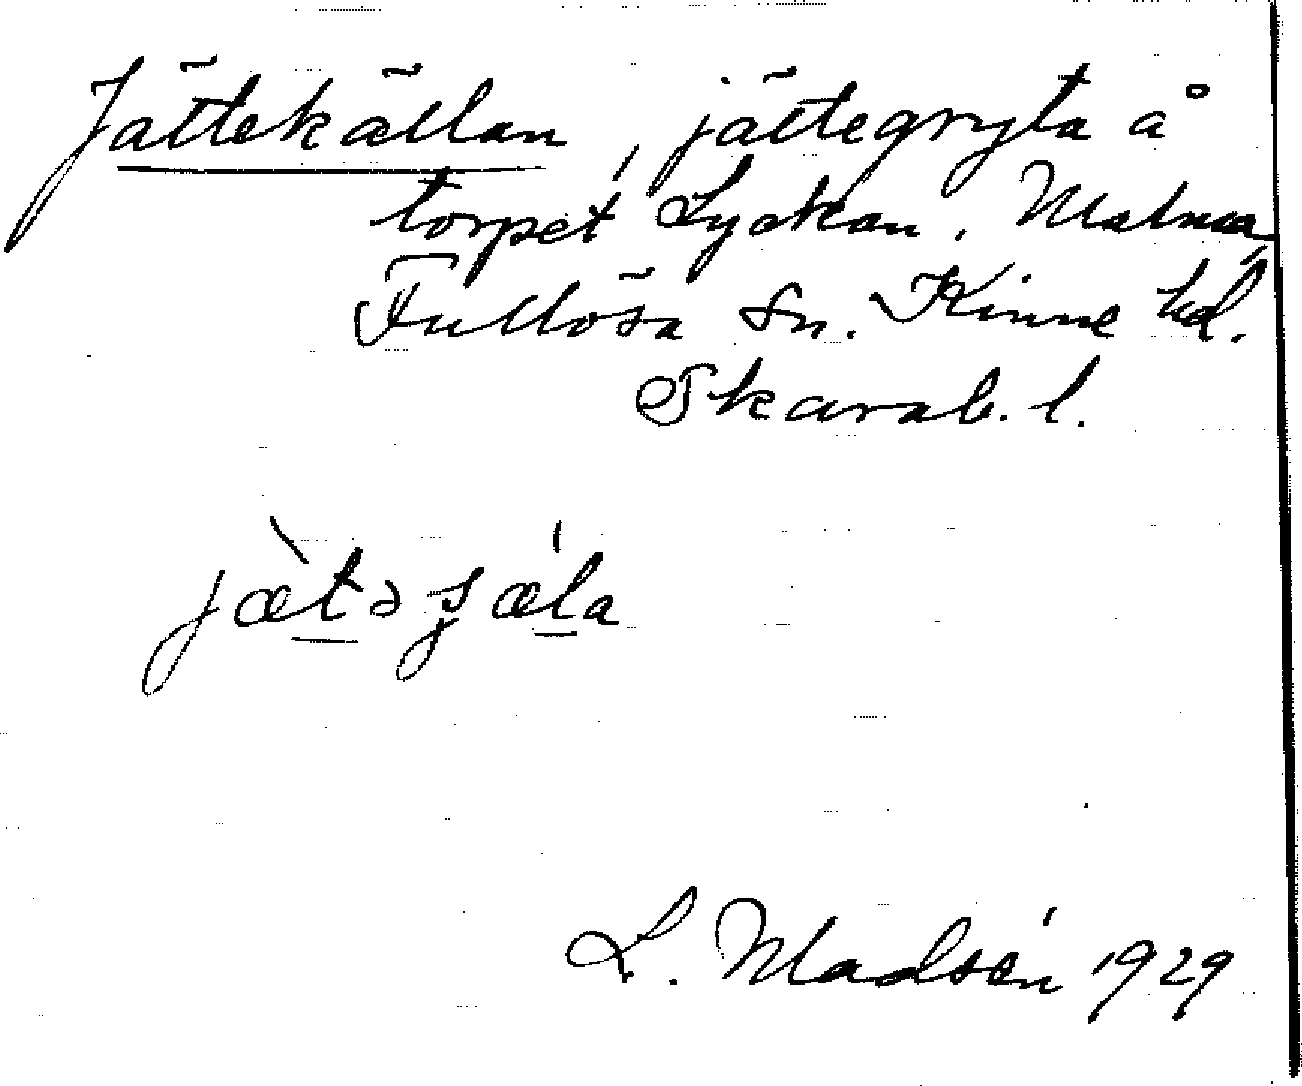 Jättekällan, jättegryta å
torpet Lyckan, Malma,
Fullösa Sn. Kinne hd.
Skarab. l.
L. Madsén 1929